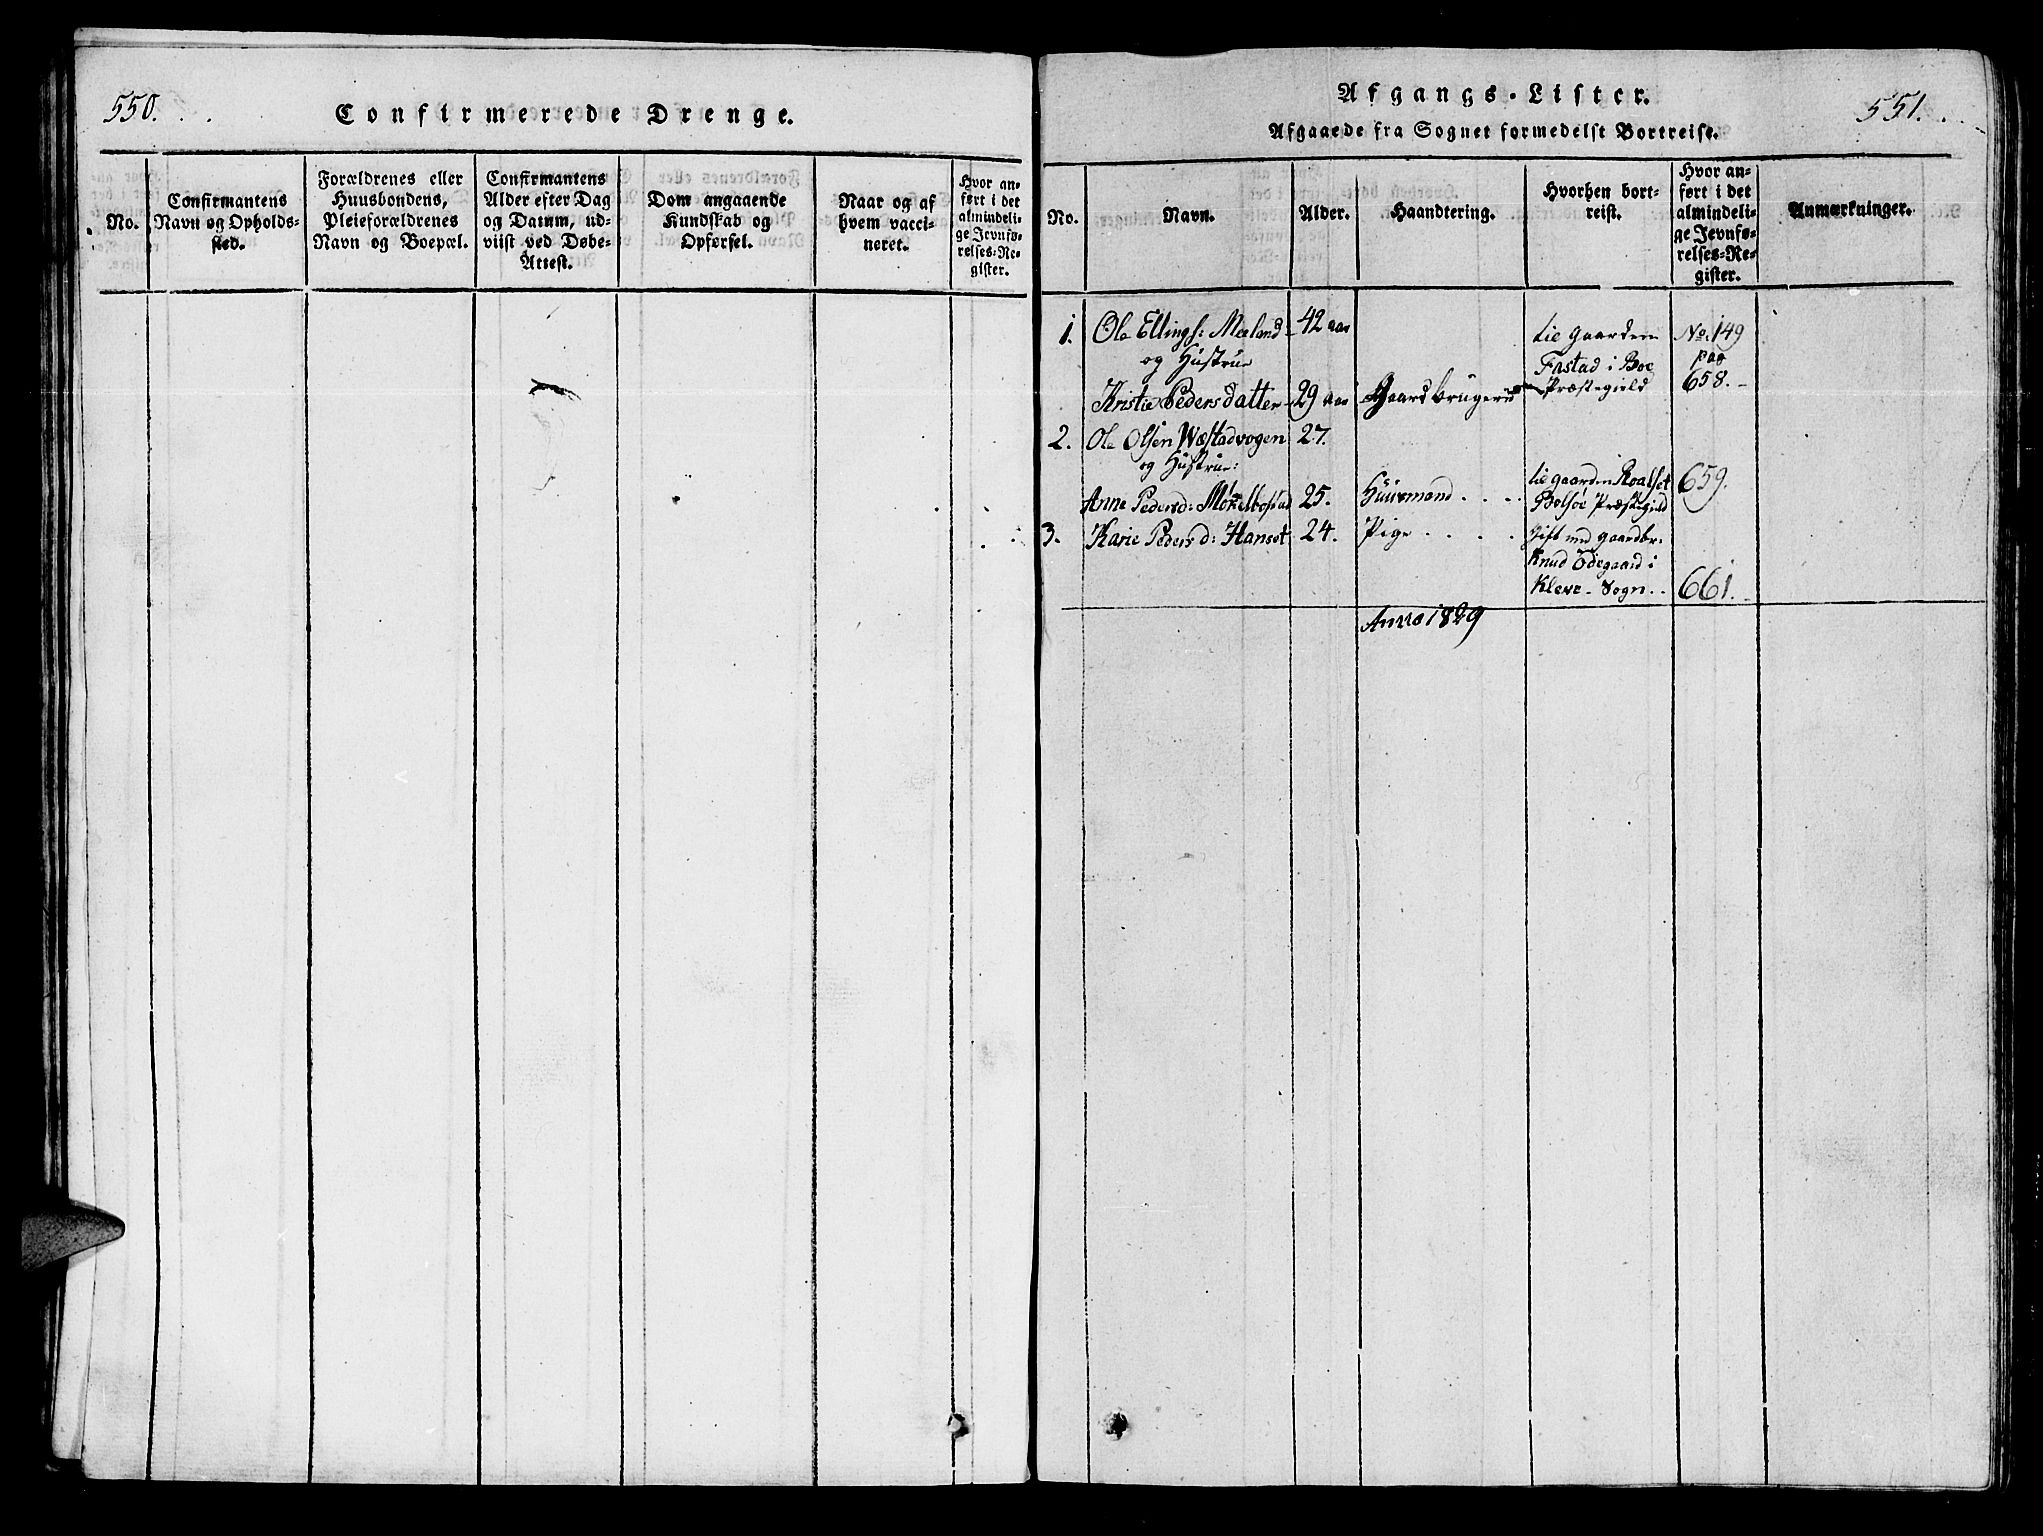 550.
Confirmerede Drenge.
No.
Confirmantens
Navn og Opholds-
sted.
Forældrenes eller
Huusbondens,
Pleieforældrenes
Navn og Boepæl.
Confirmantens
Alder efter Dag
og Datum, ud-
viist ved Døbe-
Attest.
Dom angaaende
Kundskab og
Opførsel.
Naar og af
hvem vacci-
neret.
Hvor an-
ført i det
almindeli-
ge Jevnfø-
relses-Re-
gister.
551.
Afgangs-Lister.
Afgaaede fra Sognet formedelst Bortreise.
No.
Navn.
Alder.
Haandtering.
Hvorhen bort-
reist.
Hvor an-
ført i det
almindeli-
ge Jevnfø-
relses-Re-
gister.
Anmærkninger.
1. Ole Ellings: Meeland 42 aar
og Hustrue
Kristie Pedersdatter 29 aar Gaardbrugerne
tie Gaarden
Fastad i Boe
Præstegield
No. 149
pag
658.
2. Ole Olsen Wæstadvogen 27.
og Hustrue:
Anne Pedersd: Mökelbostad 25. Huusmand
tie gaarden Roalset
Bolsöe Præstegield
659.
3. Karie Pedersd: Hanset 24. Pige
Gift med gaardbr:
Knud Ödegaard i
Kleve-Sogn
661.
Anno 1829